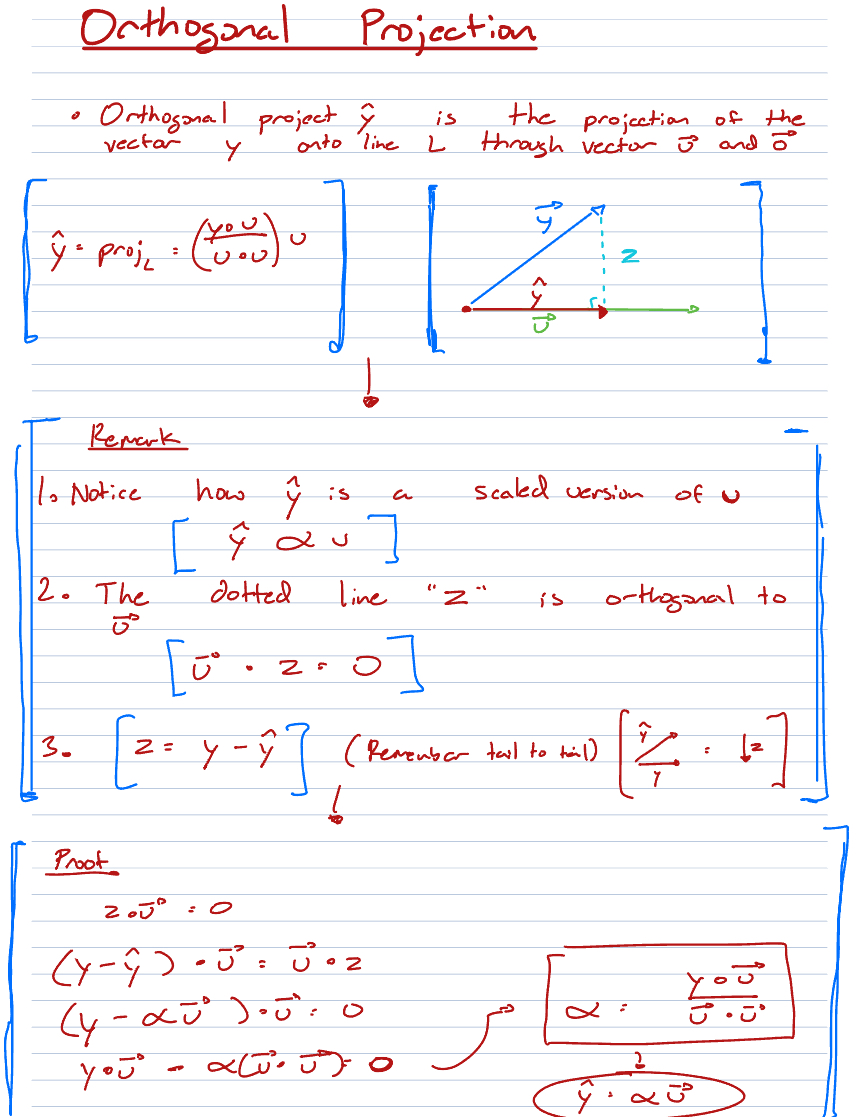 Orthogonal Projection
• Orthogonal project ŷ is the projection of the
vector y onto line L through vector u⃗ and 0⃗
ŷ = proj_L = (y∘u / u∘u) u
y⃗
z
ŷ
u⃗
Remark
1. Notice how ŷ is a scaled version of u
[ ŷ α u ]
2. The dotted line "z" is orthogonal to
u⃗
[ u⃗ · z = 0 ]
3. [ z = y - ŷ ] (Remember tail to tail) [ ŷ y = ↓z ]
Proof
z∘u⃗ = 0
(y - ŷ) · u⃗ = u⃗ ∘ z
(y - αu⃗) · u⃗ = 0
y∘u⃗ - α(u⃗ · u⃗) = 0
α = y∘u⃗ / u⃗ · u⃗
ŷ = αu⃗